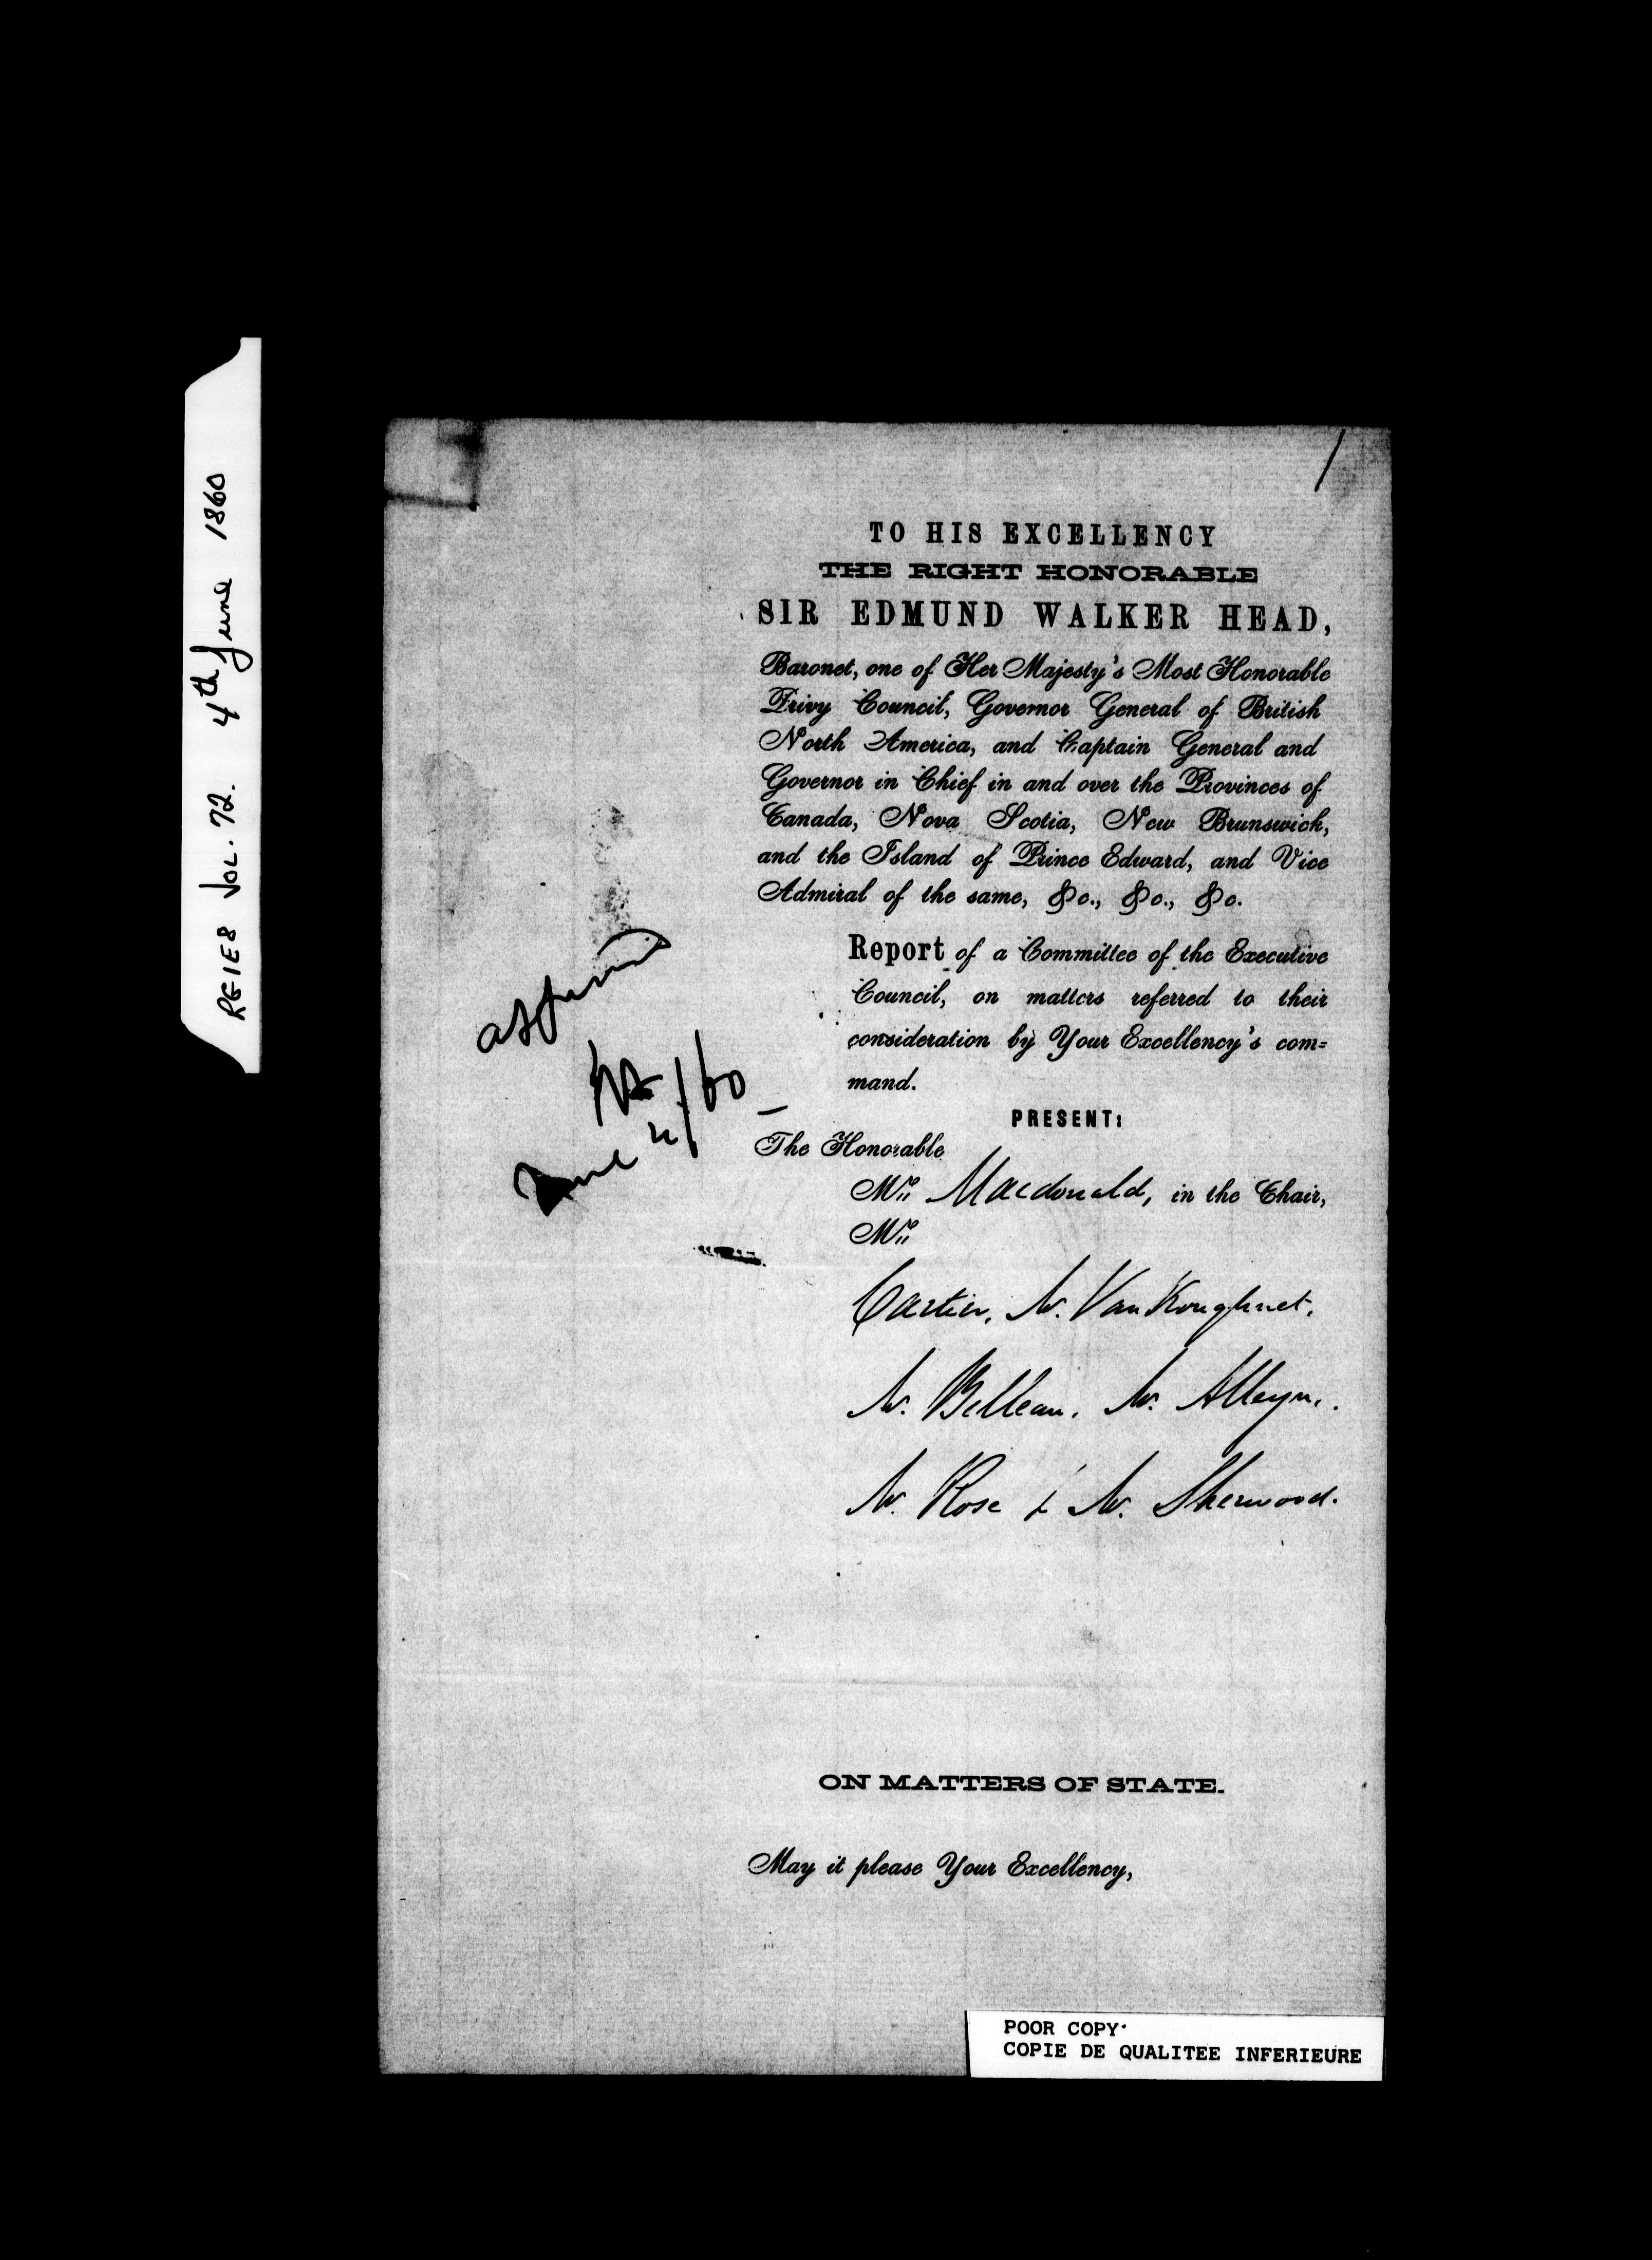 RG1E8 VOL. 72. 4th June 1860
/
TO HIS EXCELLENCY
THE RIGHT HONORABLE
SIR EDMUND WALKER HEAD,
Baronet, one of Her Majesty's Most Honorable
Privy Council, Governor General of British
North America, and Captain General and
Governor in Chief in and over the Provinces of
Canada, Nova Scotia, New Brunswick,
and the Island of Prince Edward, and Vice
Admiral of the same, &c., &c., &c.
Report of a Committee of the Executive
Council, on matters referred to their
consideration by Your Excellency's com=
mand.
June 4/60
PRESENT:
The Honorable
Mr. Macdonald, in the Chair,
Mr.
Cartier, Mr. VanKoughnet.
Mr. Belleau. Mr. Alleyn.
Mr. Rose & Mr. Sherwood.
ON MATTERS OF STATE.
May it please Your Excellency,
POOR COPY
COPIE DE QUALITEE INFERIEURE